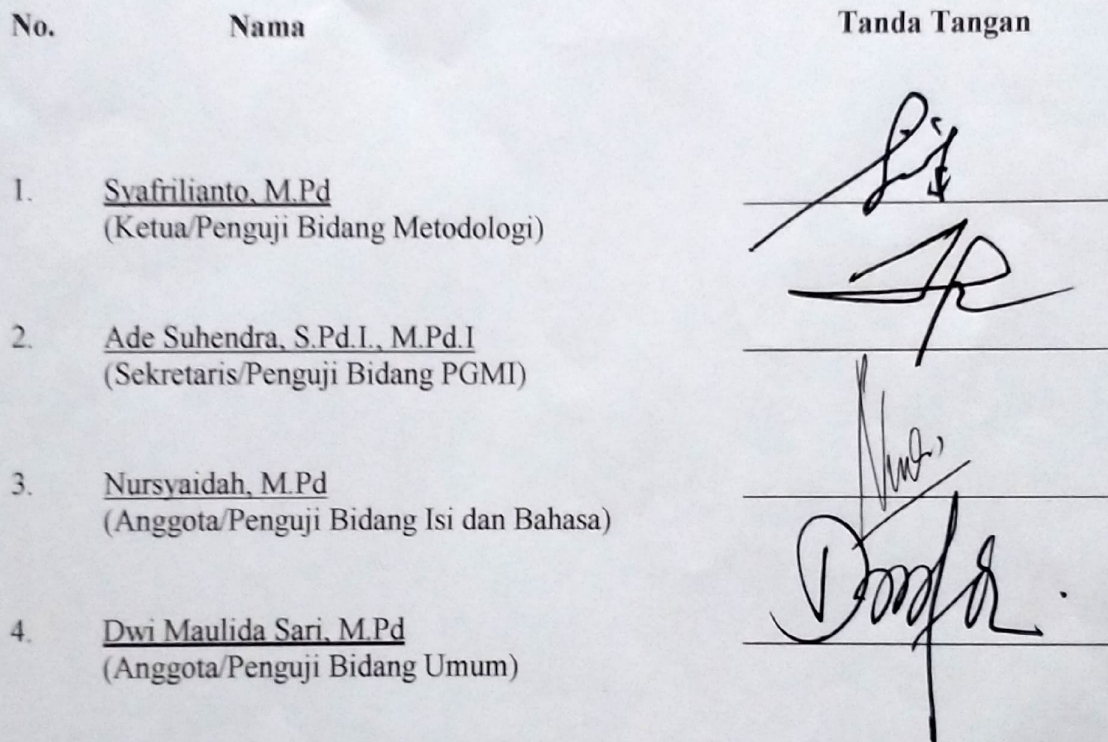 No. Nama Tanda Tangan
1. Syafrilianto, M.Pd
(Ketua/Penguji Bidang Metodologi)
2. Ade Suhendra, S.Pd.I., M.Pd.I
(Sekretaris/Penguji Bidang PGMI)
3. Nursyaidah, M.Pd
(Anggota/Penguji Bidang Isi dan Bahasa)
4. Dwi Maulida Sari, M.Pd
(Anggota/Penguji Bidang Umum)